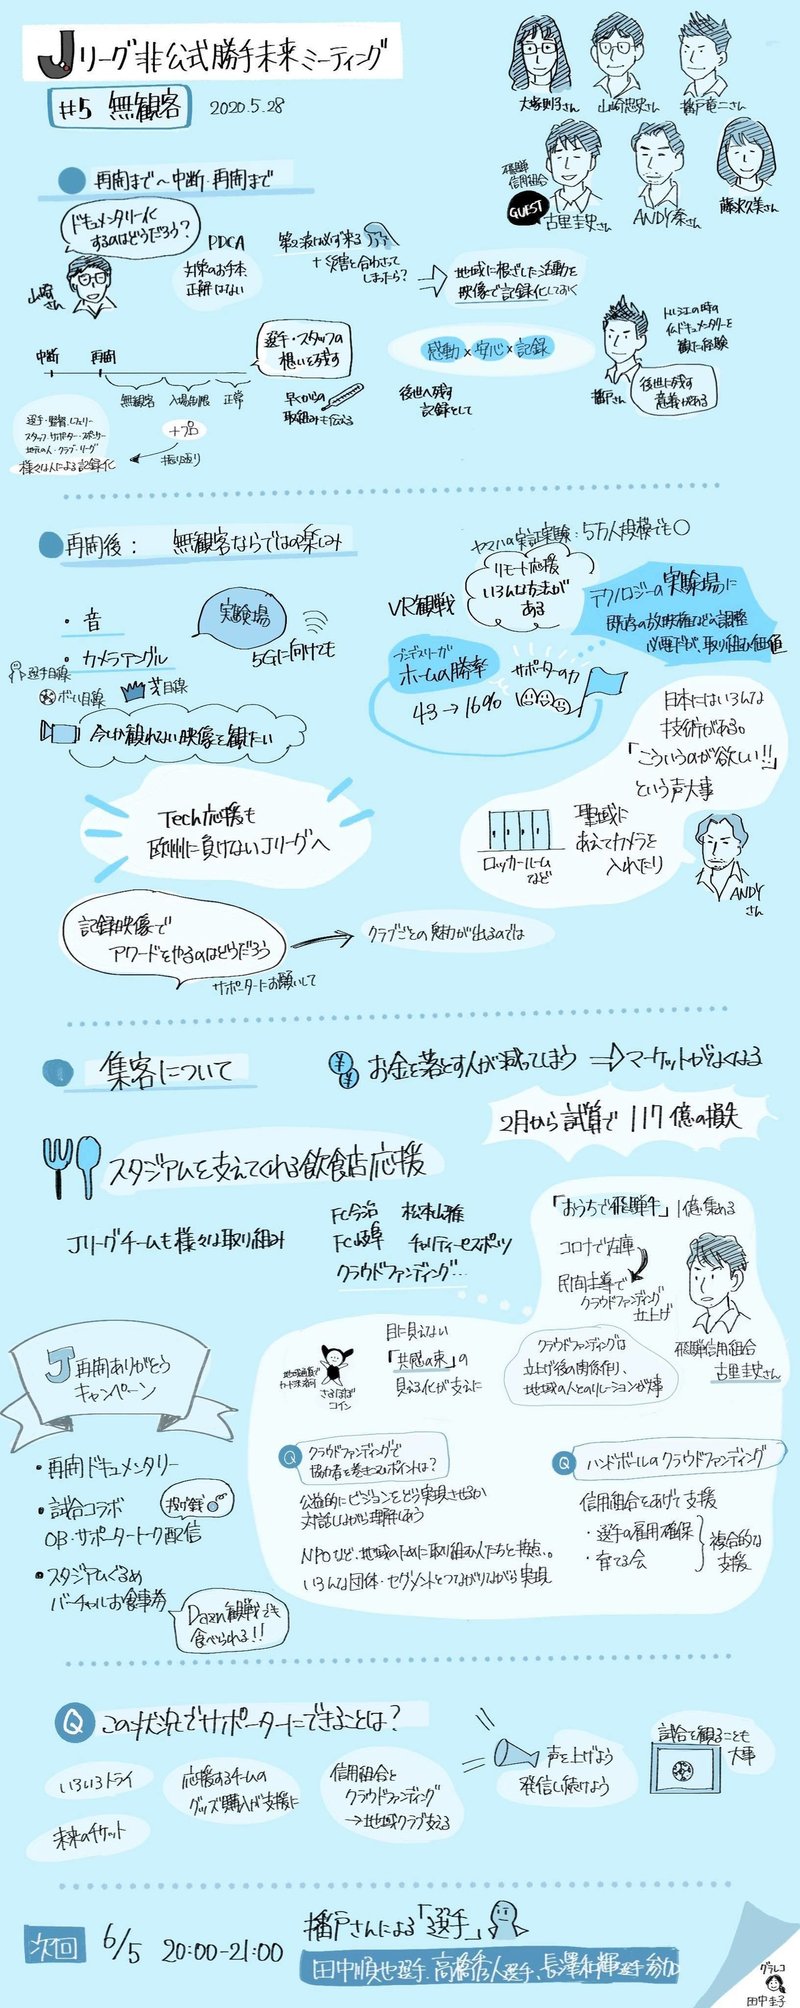 Jリーグ非公式勝手未来ミーティング
#5 無観客
2020.5.28
大塚則子さん
山崎忠史さん
播戸竜二さん
飛騨
信用組合
GUEST
古里圭史さん
ANDY秦さん
藤沢久美さん
再開まで〜中断・再開まで
ドキュメンタリー化
するのはどうだろう?
山崎
さん
PDCA
対策のお手本、
正解はない
第2波は必ず来る
+災害と合わさって
しまったら?
地域に根ざした活動を
映像で記録化しておく
中断
再開
無観客
入場制限
正常
選手・スタッフの
想いを残す
早くからの
取組みも伝える
感動×安心×記録
後世へ残す
記録として
播戸さん
トルシエの時の
仏ドキュメンタリーを
観た経験
後世に残す
意義がある
選手・監督・レフェリー
スタッフ・サポーター・スポンサー
地元の人・クラブ・リーグ
様々な人による記録化
振り返り
再開後: 無観客ならではの楽しみ
・音
・カメラアングル
選手目線
ボール目線
芝目線
実験場
5Gに向けても
今しか観れない映像を観たい
ヤマハの実証実験:5万人規模でも〇
VR観戦
リモート応援
いろんな方法が
ある
テクノロジーの実験場に
既存の放映権などの調整
必要だが、取り組む価値
ブンデスリーガ
ホームの勝率
43→16%
サポーターの力
日本にはいろんな
技術がある。
「こういうのが欲しい!!」
という声大事
Tech応援も
欧州に負けないJリーグへ
ロッカールーム
など
聖域に
あえてカメラを
入れたり
ANDY
さん
記録映像で
アワードをやるのはどうだろう
サポーターにお願いして
クラブごとの魅力が出るのでは
集客について
¥
¥
お金を落とす人が減ってしまう⇒マーケットがなくなる
2月から試算で117億の損失
スタジアムを支えてくれる飲食店応援
Jリーグチームも様々な取り組み
FC今治 松本山雅
FC岐阜 チャリティーセスポーツ
クラウドファンディング…
「おうちで飛騨牛」1億集める
コロナで在庫
民間主導で
クラウドファンディング
立上げ
飛騨信用組合
古里圭史さん
クラウドファンディングは
立上げ後の関係作り、
地域の人とのリレーションが大事
目に見えない
「共感の束」の
見える化が支えに
さるぼぼ
コイン
J再開ありがとう
キャンペーン
・再開ドキュメンタリー
・試合コラボ
OB・サポータートーク配信
投げ銭
・スタジアムぐるめ
バーチャルお食事券
Dazn観戦でも
食べられる!!
Q クラウドファンディングで
協力者を巻き込むポイントは?
公益的にビジョンをどう実現させるか
対話しながら理解しあう
NPOなど、地域のために取り組む人たちと接点、。
いろんな団体・セグメントとつながりながら実現
Q ハンドボールのクラウドファンディング
信用組合をあげて支援
・選手の雇用確保
・育てる会
複合的な
支援
Q この状況でサポーターにできることは?
いろいろトライ
未来のチケット
応援するチームの
グッズ購入が支援に
信用組合と
クラウドファンディング
→地域クラブ支える
声を上げよう
発信し続けよう
試合を観ることも
大事
次回
6/5 20:00-21:00
播戸さんによる「選手」
田中順也選手、高橋秀人選手、長澤和輝選手参加
グラレコ
田中圭子